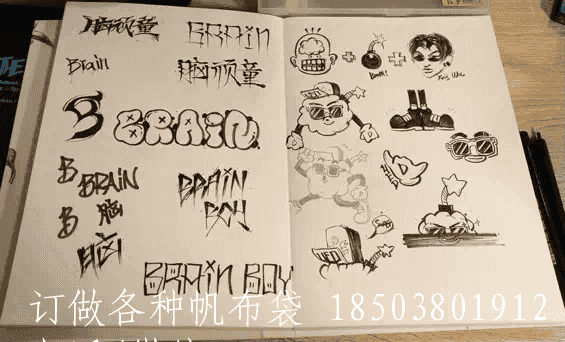 脑顽童
BRAiN
Brain
脑顽童
B
BRAiN
B
BRAiN
B
脑
脑
BRAiN
BOY
BRAiN BOY
BOOM!
订做各种帆布袋 18503801912